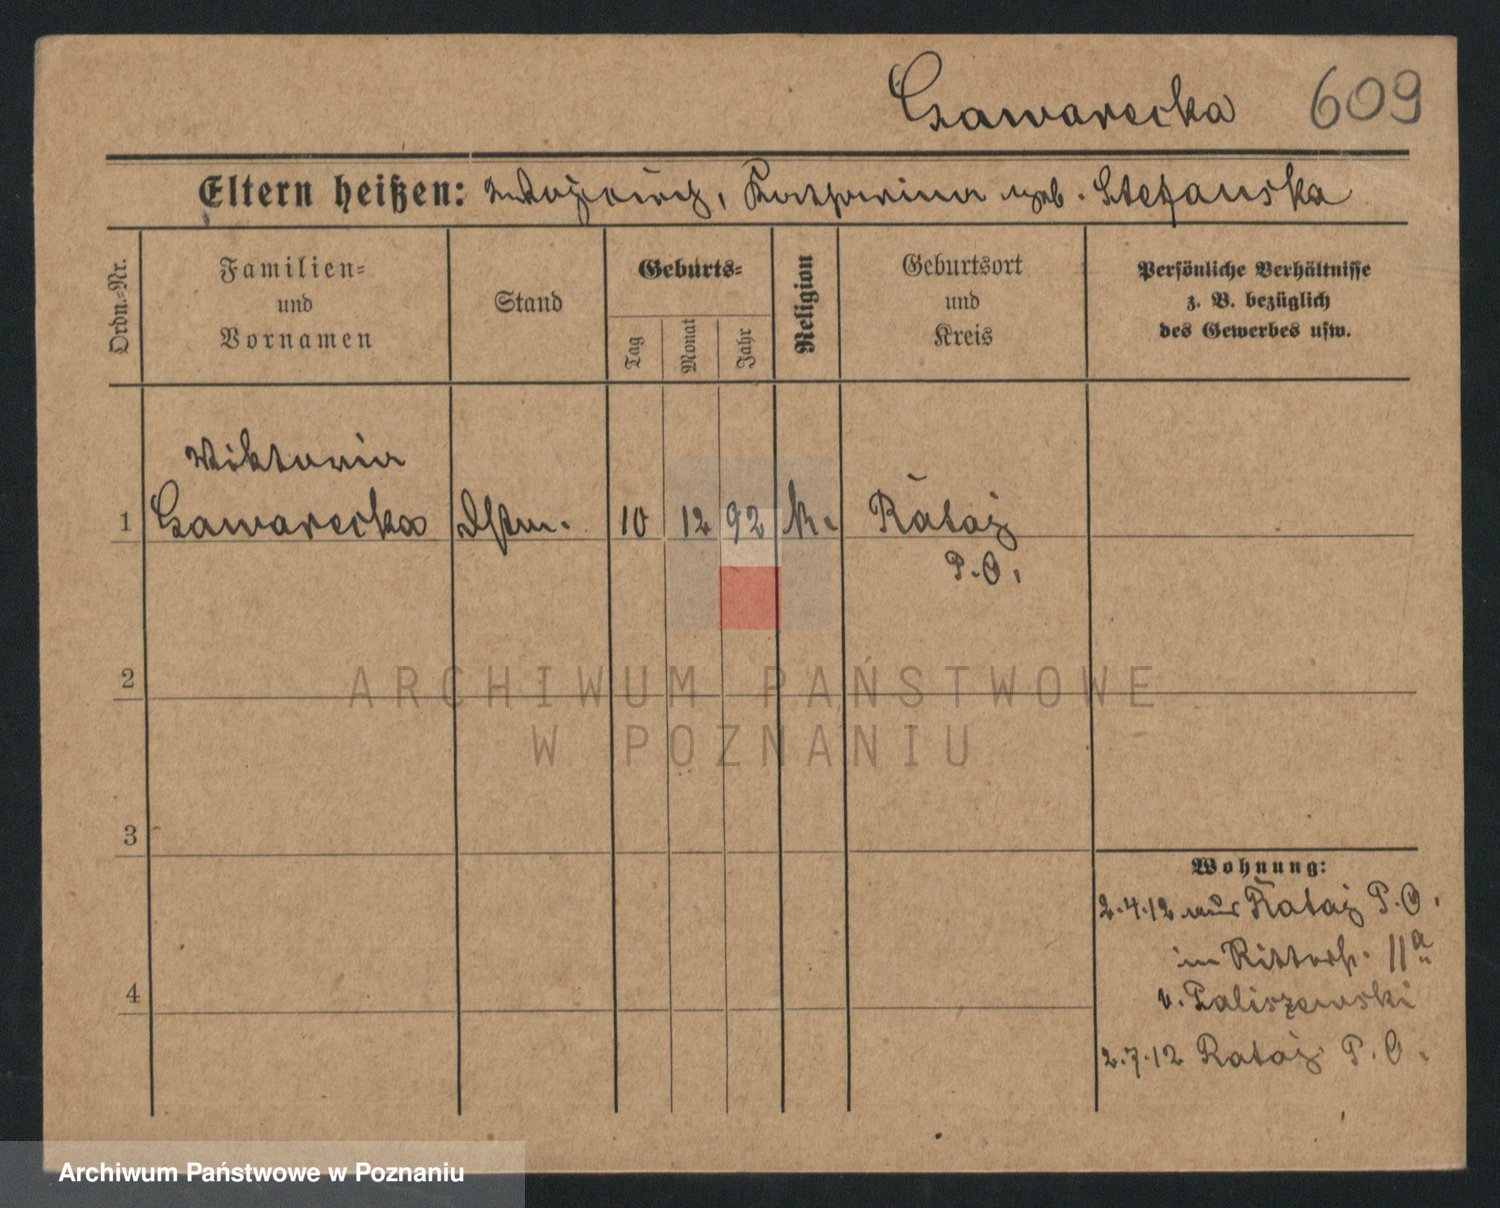 Czawarecka 609
Eltern heißen: Katharina geb. Stefanska
Ordn.-Nr.
Familien-
und
Vornamen
Stand
Geburts-
Tag
Monat
Jahr
Religion
Geburtsort
und
Kreis
Persönliche Verhältnisse
z. B. bezüglich
des Gewerbes usw.
Wiktoria
1 Czawarecka Dstm. 10 12 92 k. Rataj
P. O.
2
ARCHIWUM PAŃSTWOWE
W POZNANIU
3
4
Wohnung:
2.4.12 aus Rataj P. O.
in Ritterstr. 11a
v. Paliszewski
2.7.12 Rataj P. O.
Archiwum Państwowe w Poznaniu